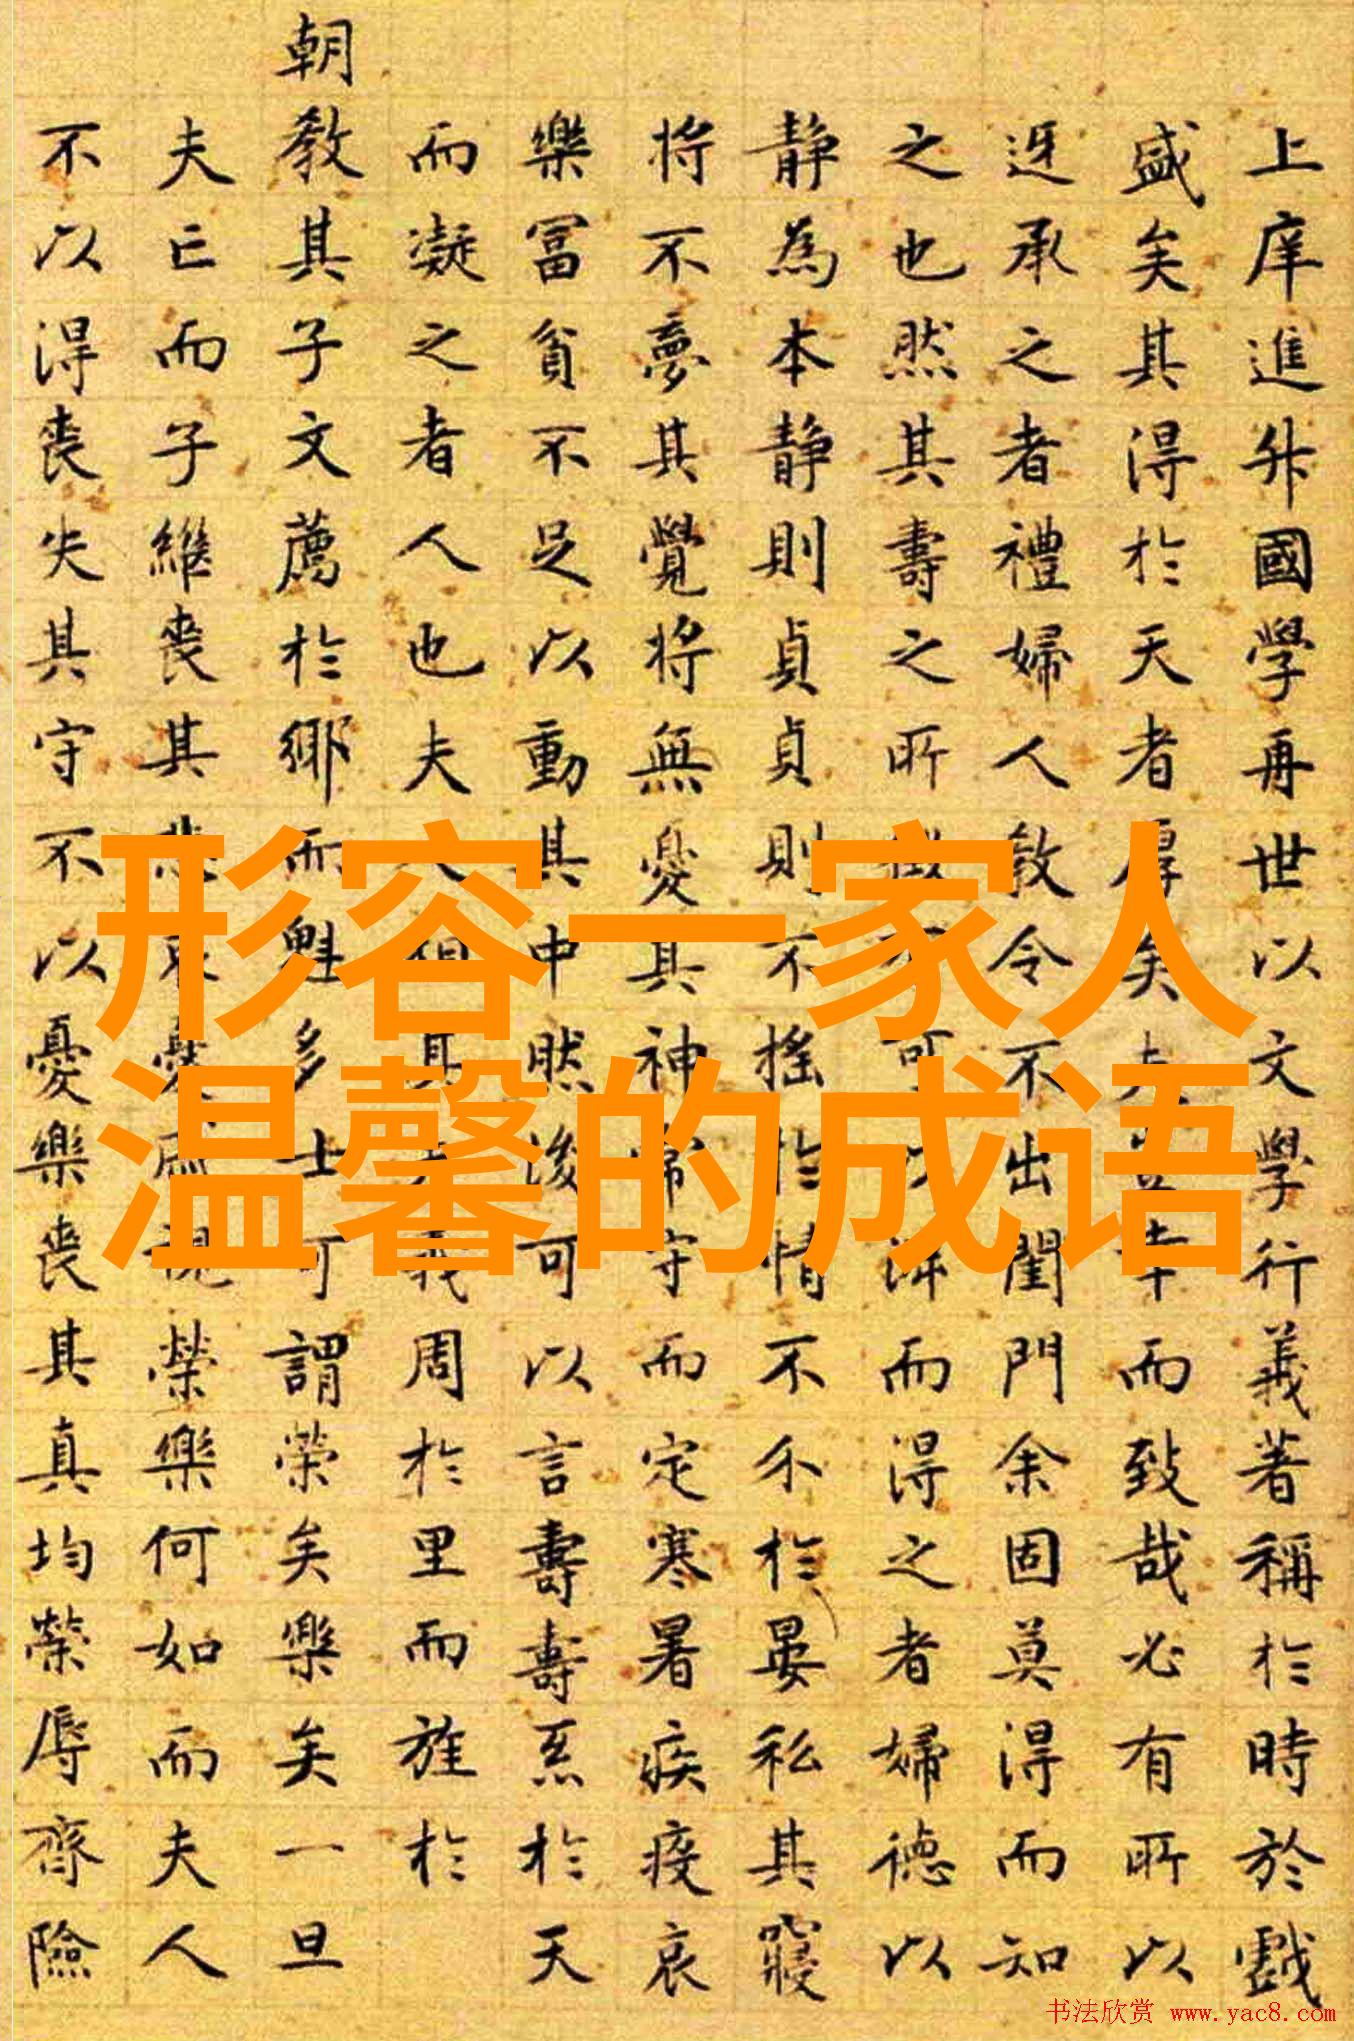 上庠進升國學再世以文學行義著稱於時於戲
盛矣其得於天者厚矣夫豈幸而致哉必有所以
迓承之者禮婦人教令不出閨門余固莫得而知
之也然其壽之所不可而得之者婦德以
静為本静則貞貞則不搖於情不介於晏私其寢
将不夢其覺将無憂其神常守而定寒暑疾疫哀
樂冨貧不足以動其中然後可以言壽壽系於天
而凝之者人也夫其義周於里而旌於
朝教其子文薦於鄉而魁多士可謂榮矣樂矣一旦
夫亡而子繼喪其悲哀視榮樂何如而夫人
不以得喪失其守不以憂樂喪其真均榮辱齊險
形容一家人
温馨的成语
书法欣赏 www.yac8.com